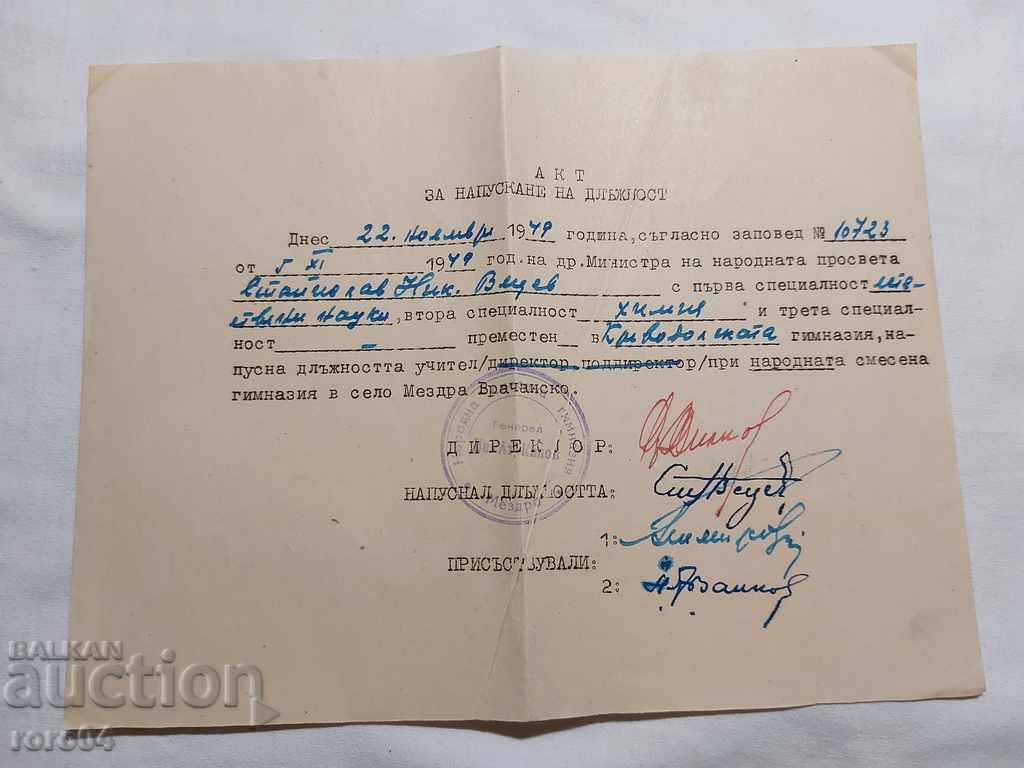 А К Т
ЗА НАПУСКАНЕ НА ДЛЪЖНОСТ
Днес 22. ноември 1949 година, съгласно заповед № 10723
от 5 XI 1949 год. на др. Министра на народната просвета
Ник. с първа специалност есте-
ствени науки, втора специалност химия и трета специал-
ност - преместен в Криводолската гимназия, на-
пусна длъжността учител/директор, поддиректор/при народната смесена
гимназия в село Мездра Врачанско.
Народна гимназия
Генерал
Мездра
Д И Р Е К Т О Р:
НАПУСНАЛ ДЛЪЖНОСТТА:
1:
ПРИСЪСТВУВАЛИ:
2:
BALKAN
auction
roro04